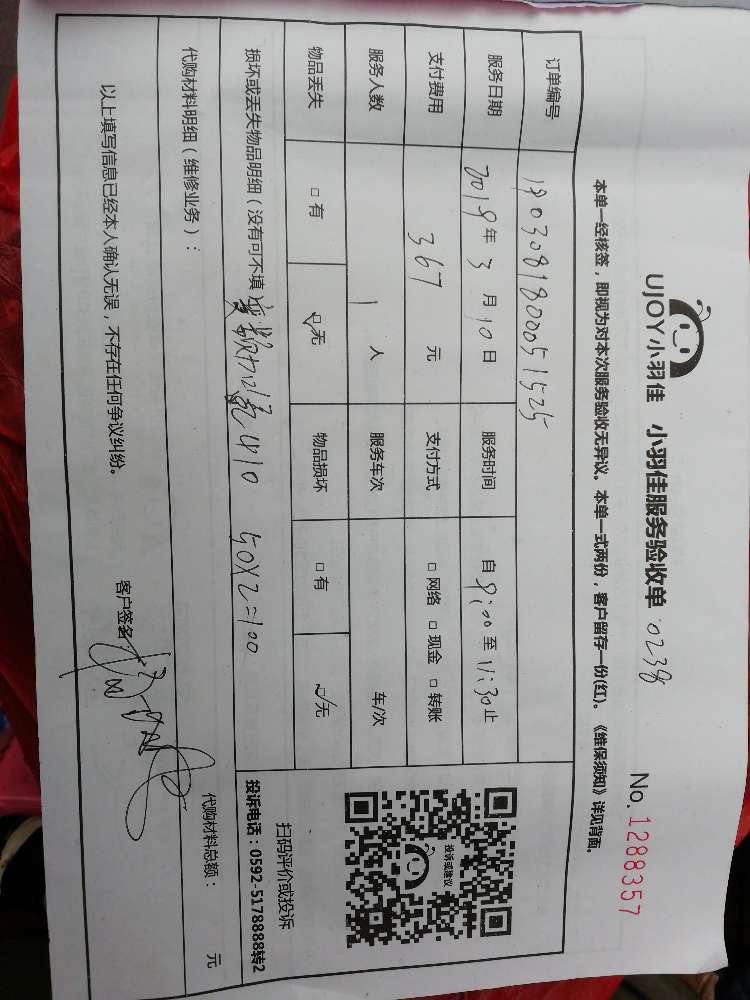 UJOY小羽佳 小羽佳服务验收单 0238 No.1288357
本单一经核签，即视为对本次服务验收无异议。本单一式两份，客户留存一份(红)。《维保须知》详见背面。
订单编号 1903081800051525
服务日期 2019年3月10日 服务时间 自9:00至11:30止
支付费用 367元 支付方式 □网络 □现金 □转账
服务人数 1人 服务车次 车/次
物品丢失 □有 ☑无 物品损坏 □有 ☑无
扫码评价或投诉
投诉或建议
投诉电话：0592-5178888转2
损坏或丢失物品明细（没有可不填） 410 50×2=100
代购材料明细（维修业务）：
代购材料总额： 元
以上填写信息已经本人确认无误，不存在任何争议纠纷。
客户签名